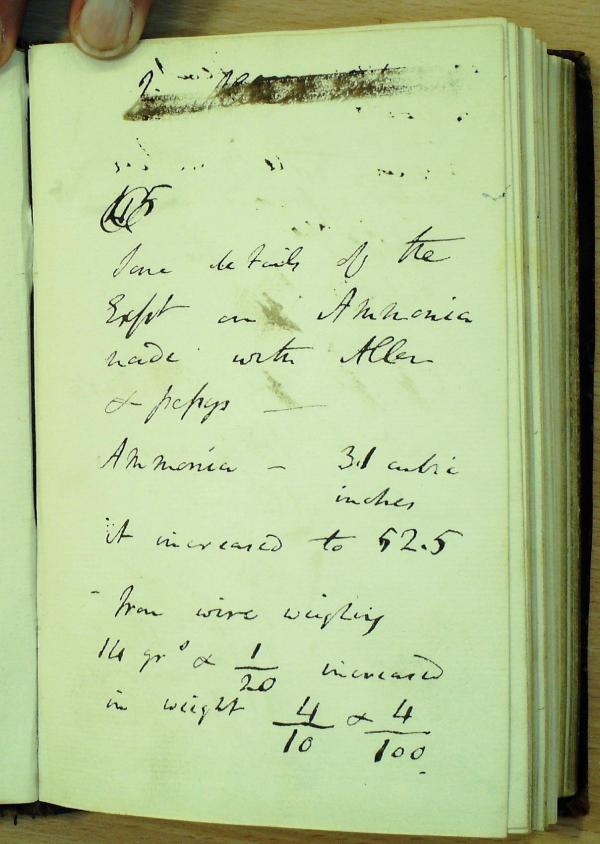 45
Some details of the
Expt on Ammonia
made with Allen
& pepys —
Ammonia – 31 cubic
inches
it increased to 52.5
- Iron wire weighing
14 grs & 1/20 increased
in weight 4/10 & 4/100